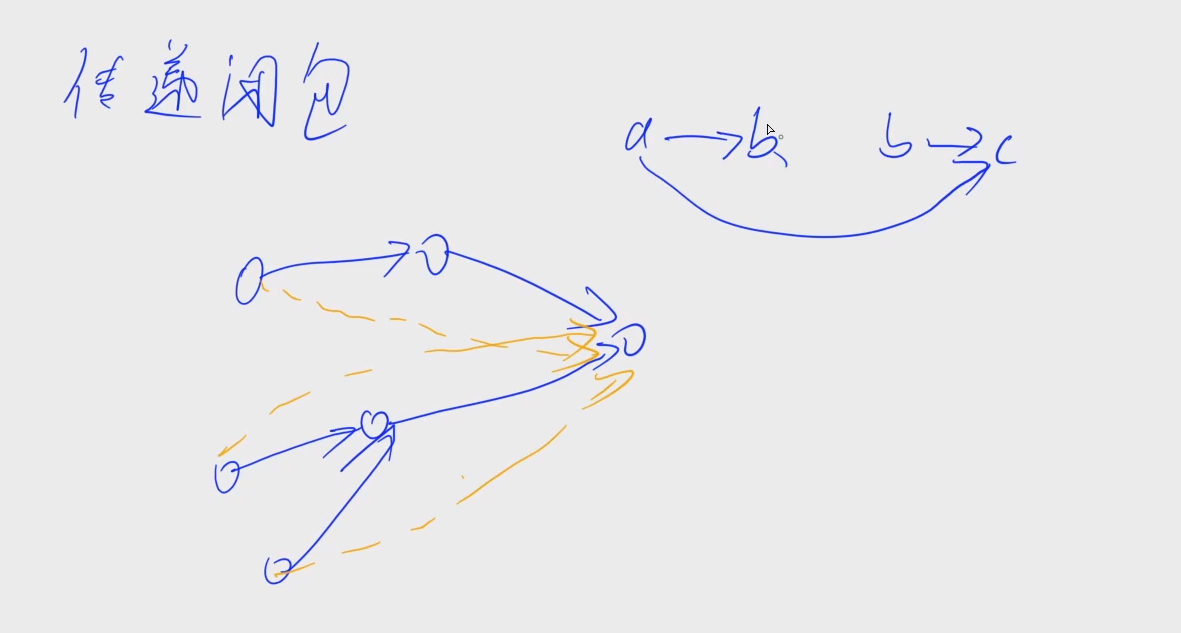 传递闭包
a → b b → c